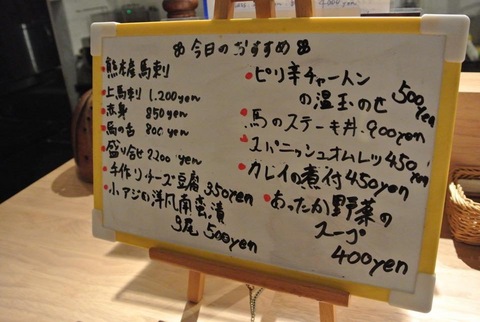 今日のおすすめ
熊本産馬刺
上馬刺 1,200yen
赤身 850yen
馬の舌 800yen
盛り合せ 2200yen
手作りチーズ豆腐 350yen
小アジの洋風南蛮漬
3尾 500yen
ピリ辛チャートン
の温玉のせ 500yen
馬のステーキ丼 900yen
スパニッシュオムレツ 450yen
カレイの煮付 450yen
あったか野菜の
スープ
400yen